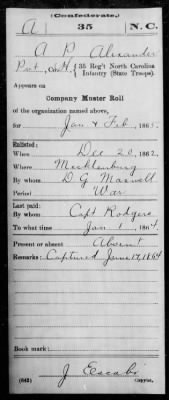 (Confederate.)
A 35 N.C.
A P Alexander
Pvt, Co. H, 35 Reg't North Carolina
Infantry (State Troops).
Appears on
Company Muster Roll
of the organization named above,
for Jan & Feb, 186
Enlisted:
When Dec 20, 1862
Where Mecklenburg
By whom D G Maxwell
Period War
Last paid:
By whom Capt Rodgers
To what time Jan 1, 1864
Present or absent Absent
Remarks: Captured June 17, 1864
Book mark:
(642) J Escabi
Copyist.